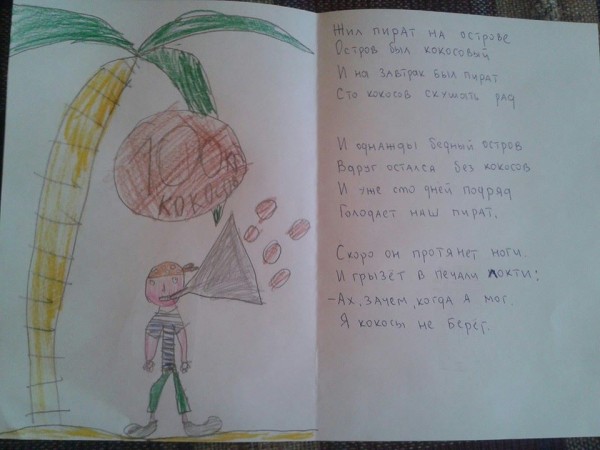 100 к
кокосы
Жил пират на острове
Остров был кокосовый
И на завтрак был пират
Сто кокосов скушать рад
И однажды бедный остров
Вдруг остался без кокосов
И уже сто дней подряд
Голодает наш пират.
Скоро он протянет ноги.
И грызёт в печали локти:
-Ах, зачем, когда я мог
Я кокосы не берёг.